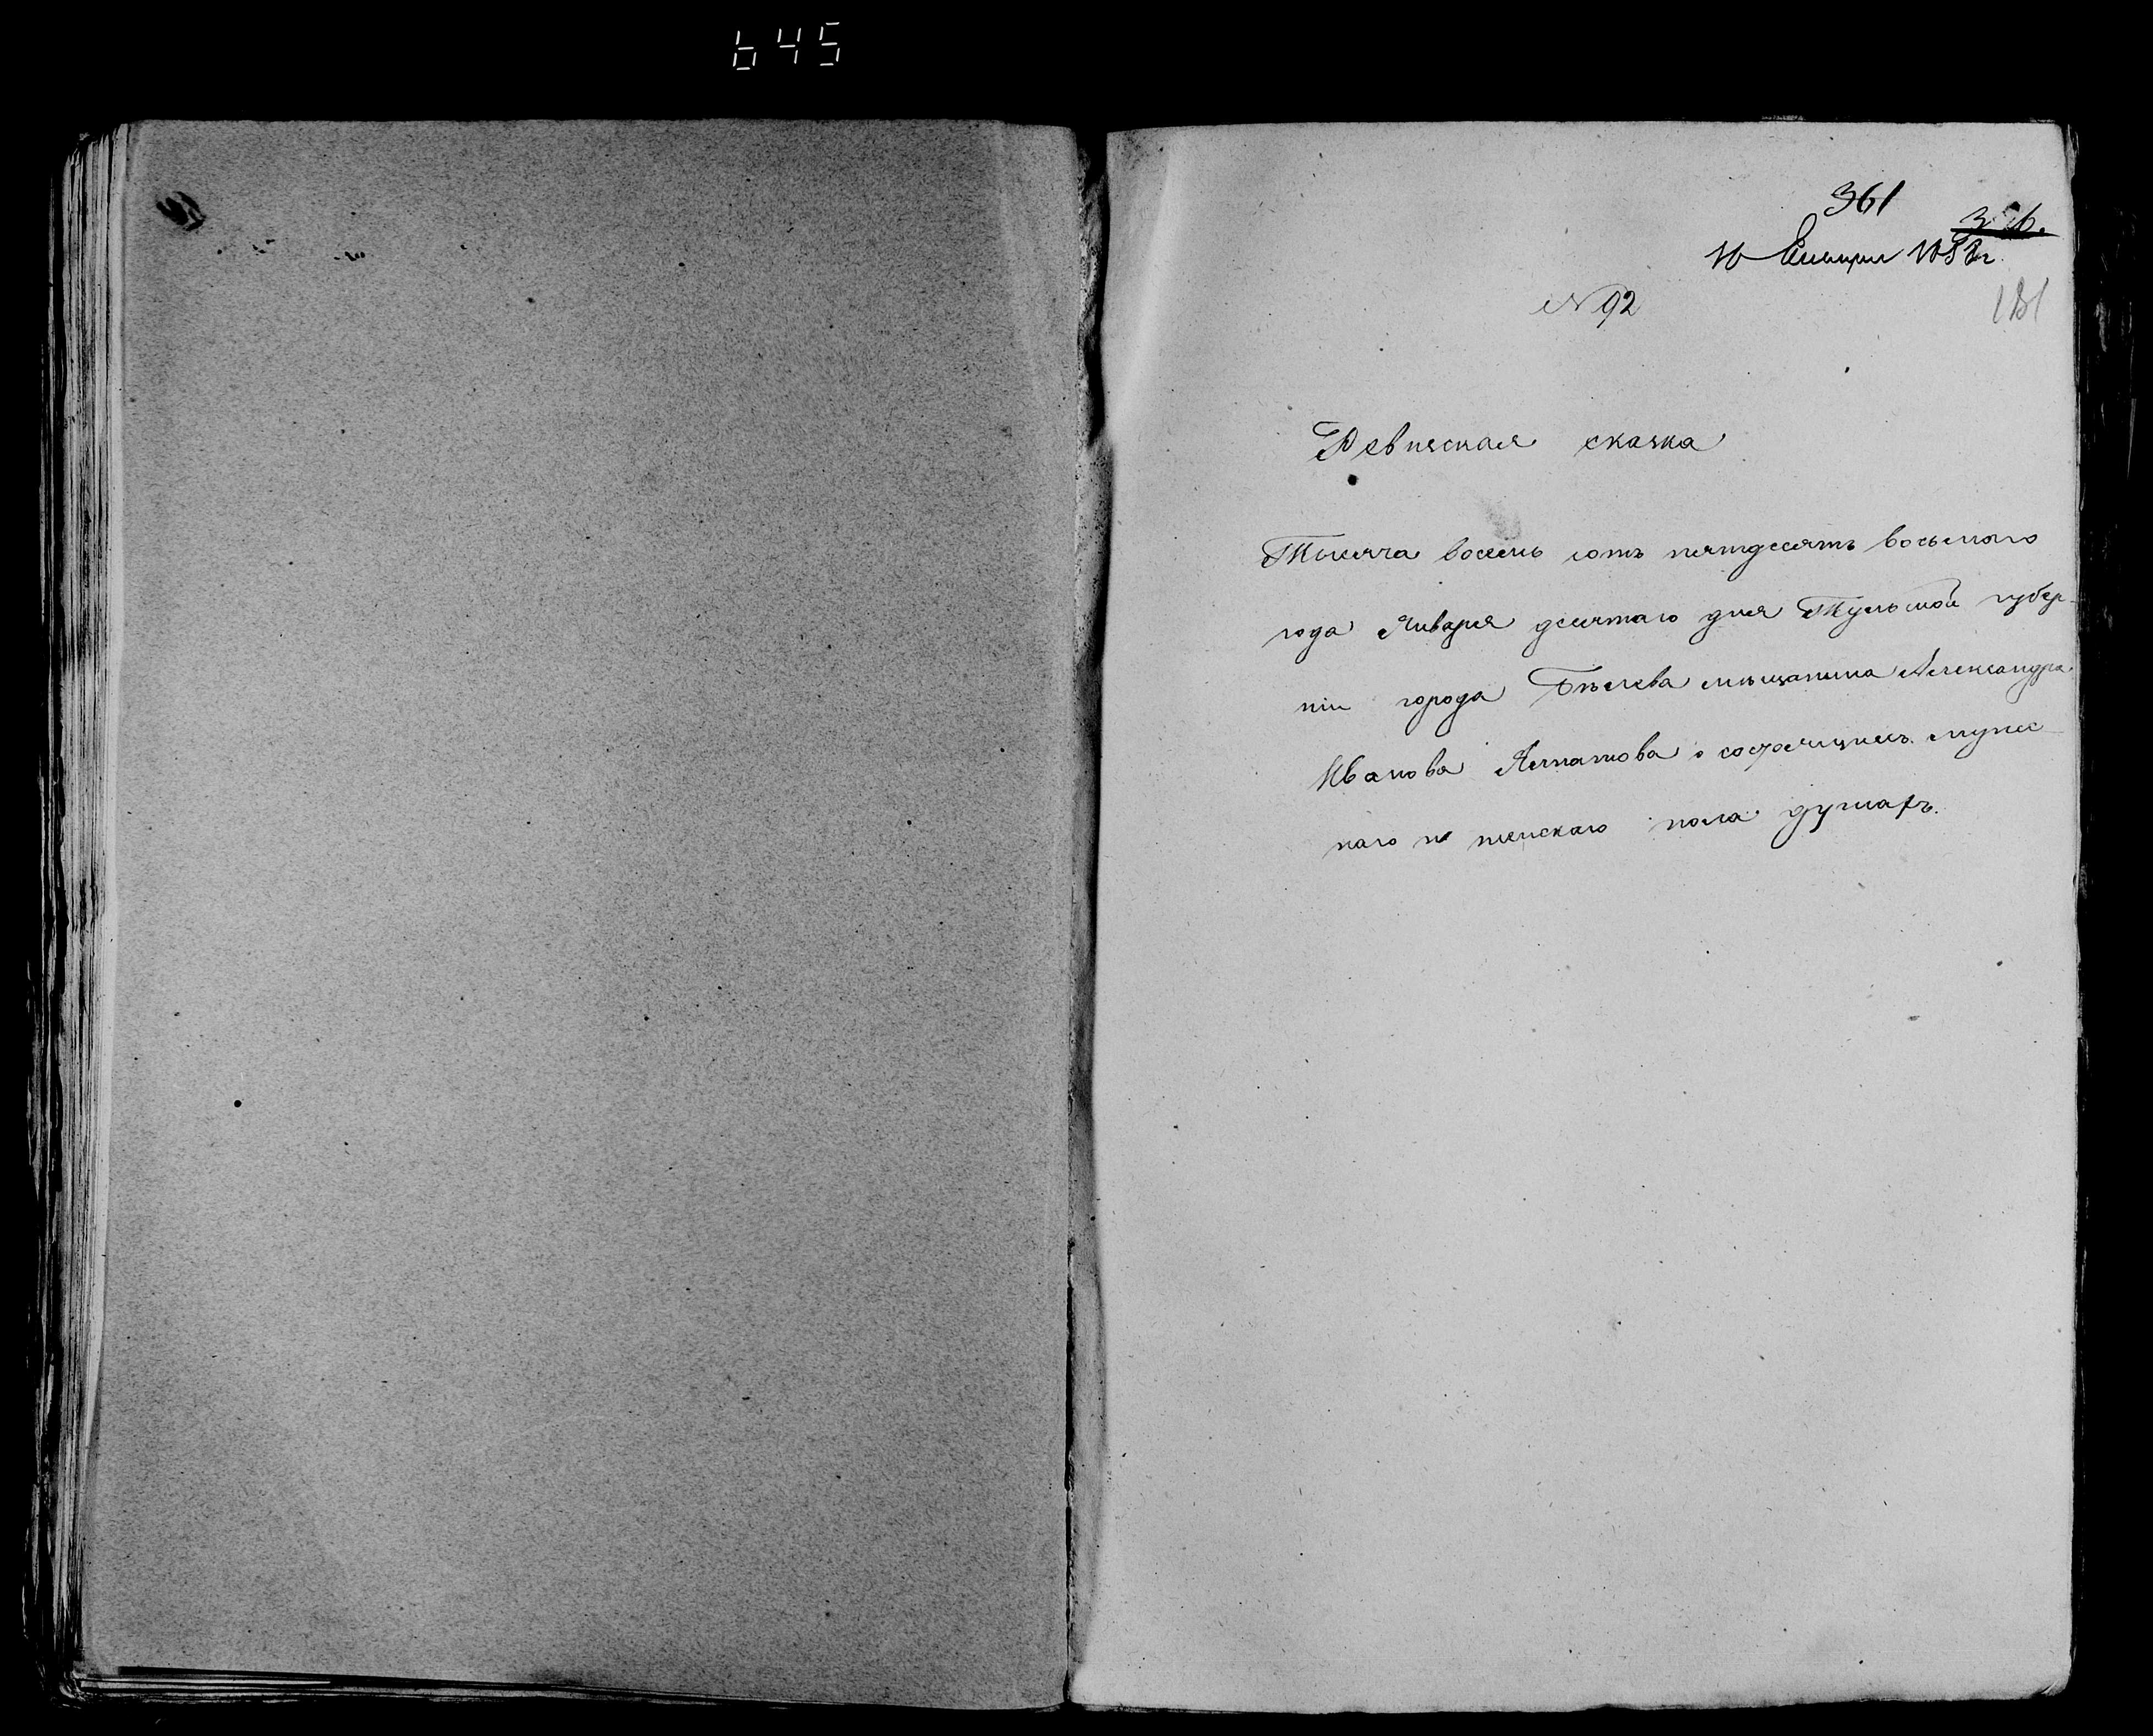 645
361
10 Января 1858 г.
№ 92
181
Ревизская сказка
Тысяча восемь сотъ пятдесятъ восьмого
года Января десятаго дня Тульской губер-
ніи города Бѣлева мѣщанина Александра
Иванова о состоящихъ мужес-
каго и женскаго пола душахъ.